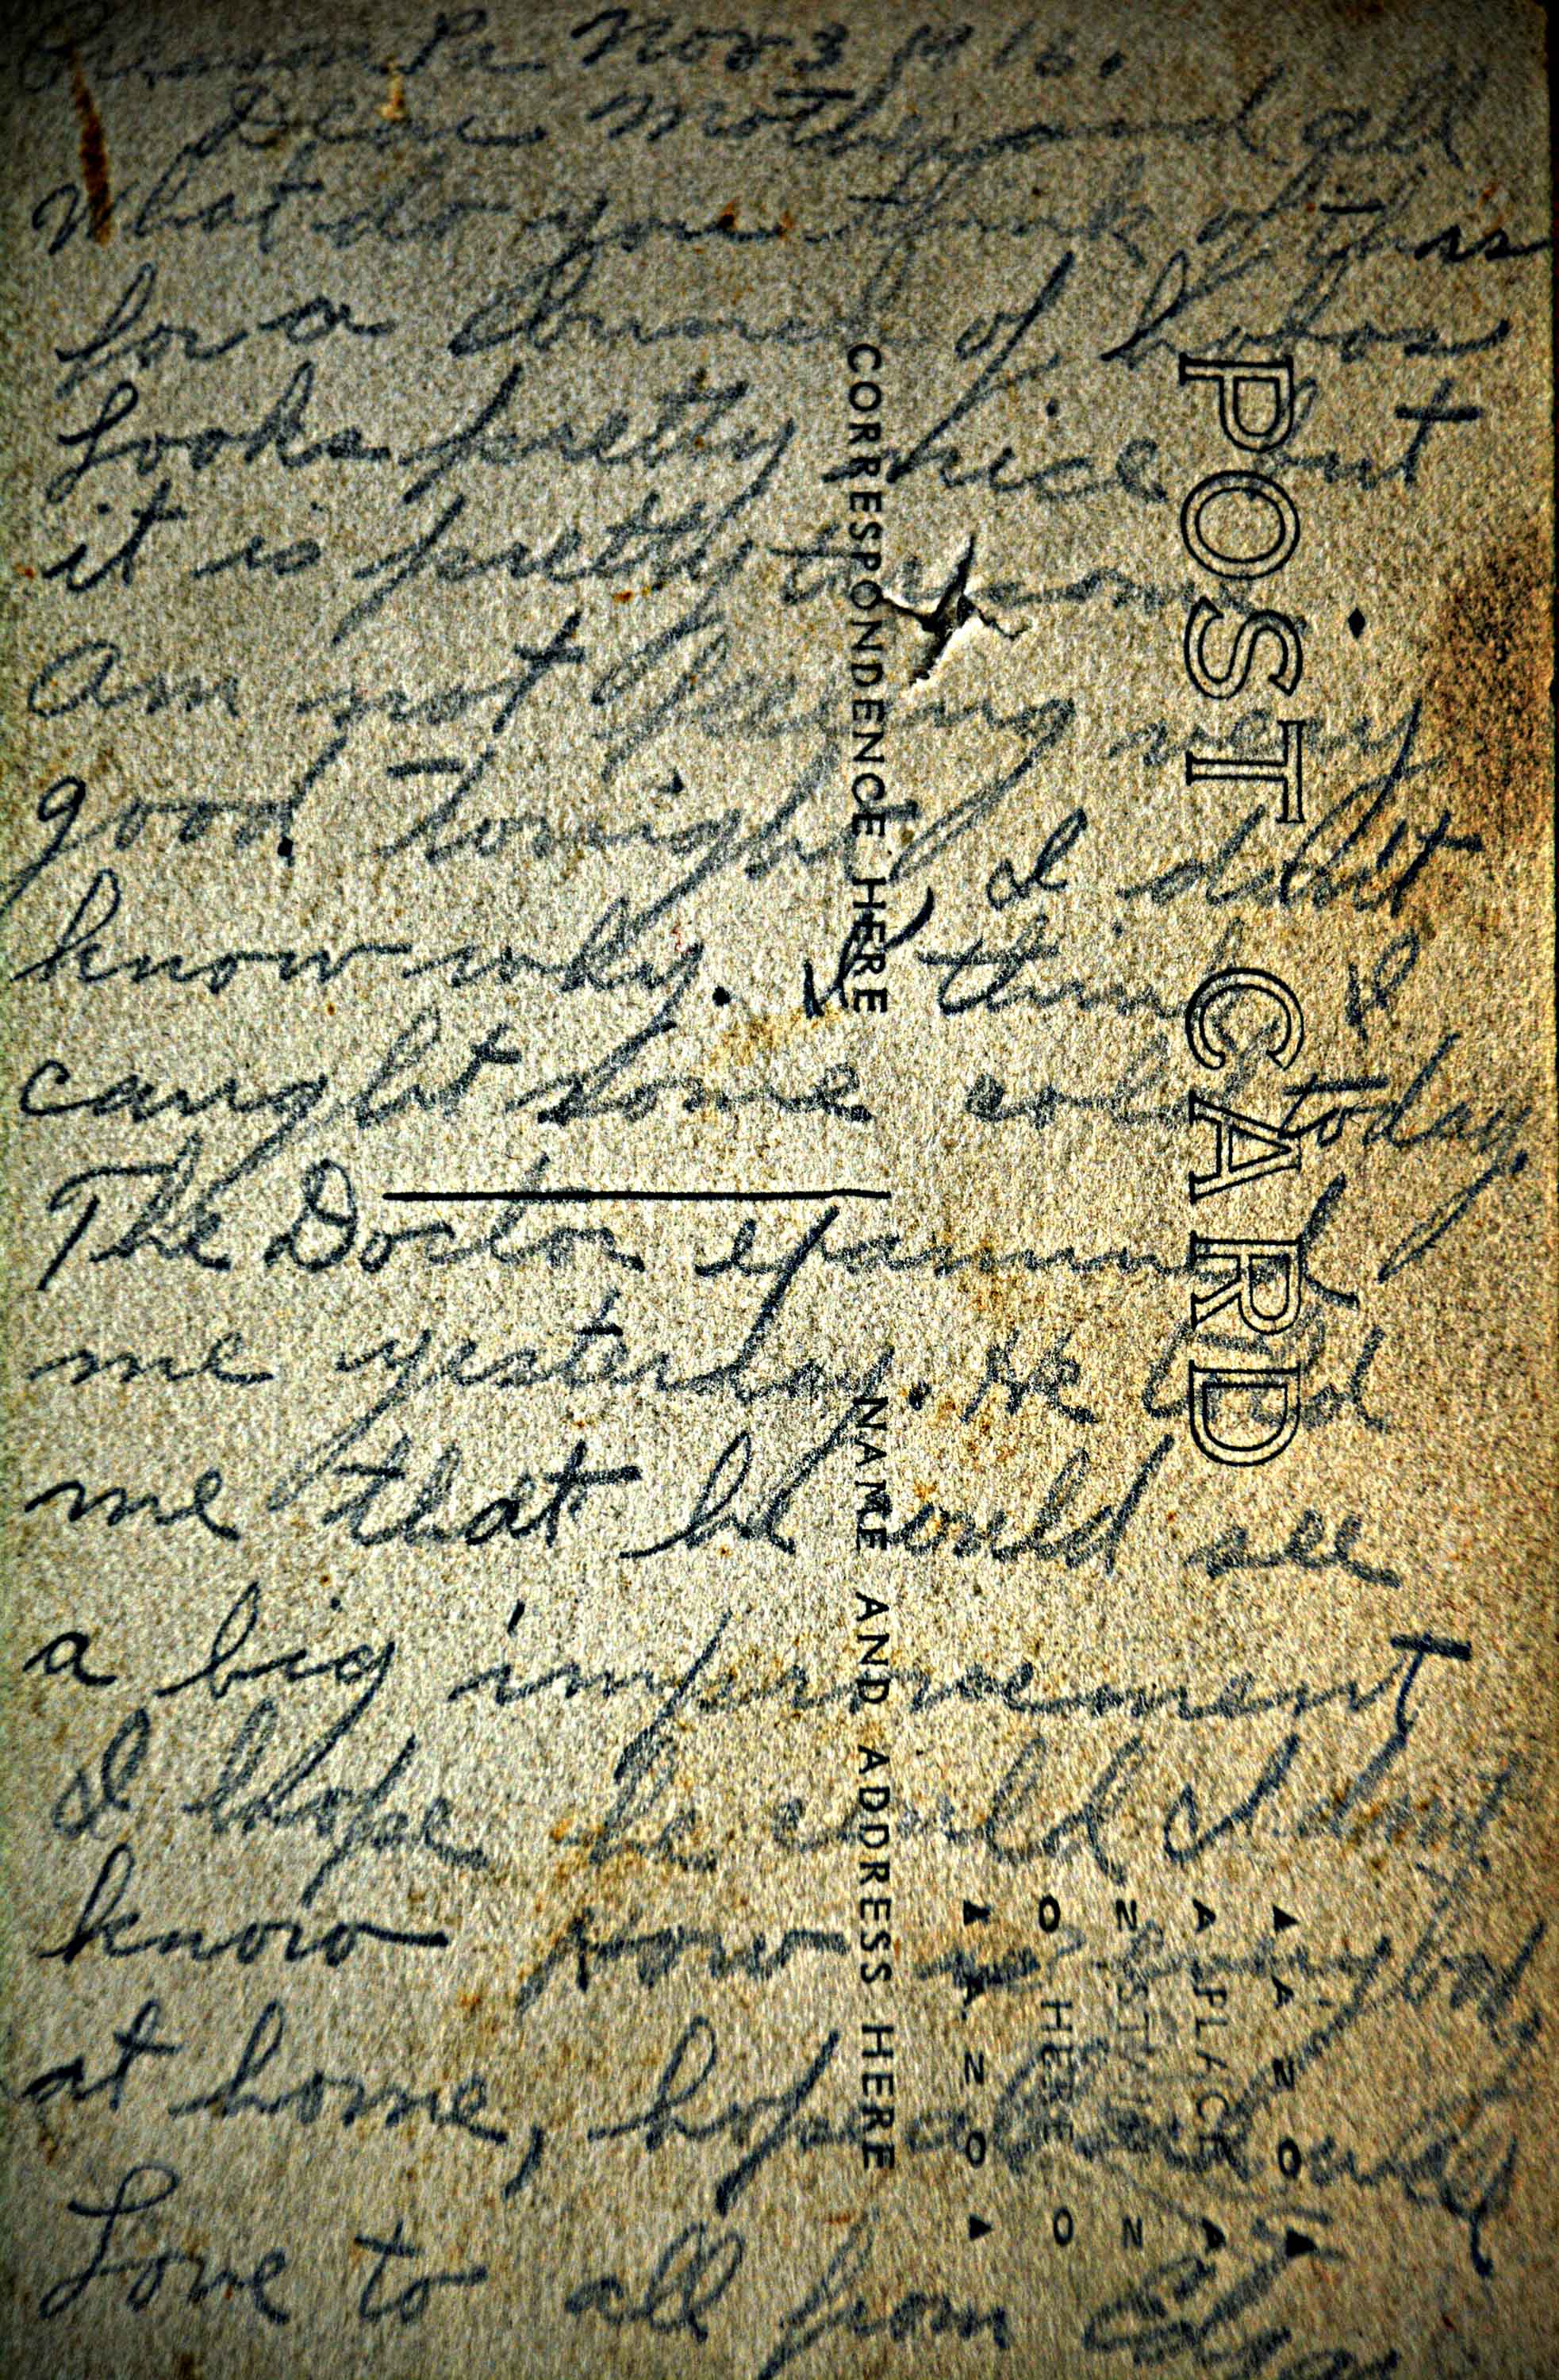 Cresson Pa Nov 3 1916.
Dear Mother and all
What do you think of this
for a bunch of hobos
Looks pretty nice but
it is pretty
Am not feeling very
good Tonight, I don't
know why. I think I
caught some cold today,
The Doctor examined
me yesterday. He told
me that he could see
a big improvement
I hope he could I don't
know how is everybody
at home, hope all are well
Love to all from Edgar
POST CARD
CORRESPONDENCE HERE
NAME AND ADDRESS HERE
PLACE
STAMP
HERE
AZO
AZO
AZO
AZO